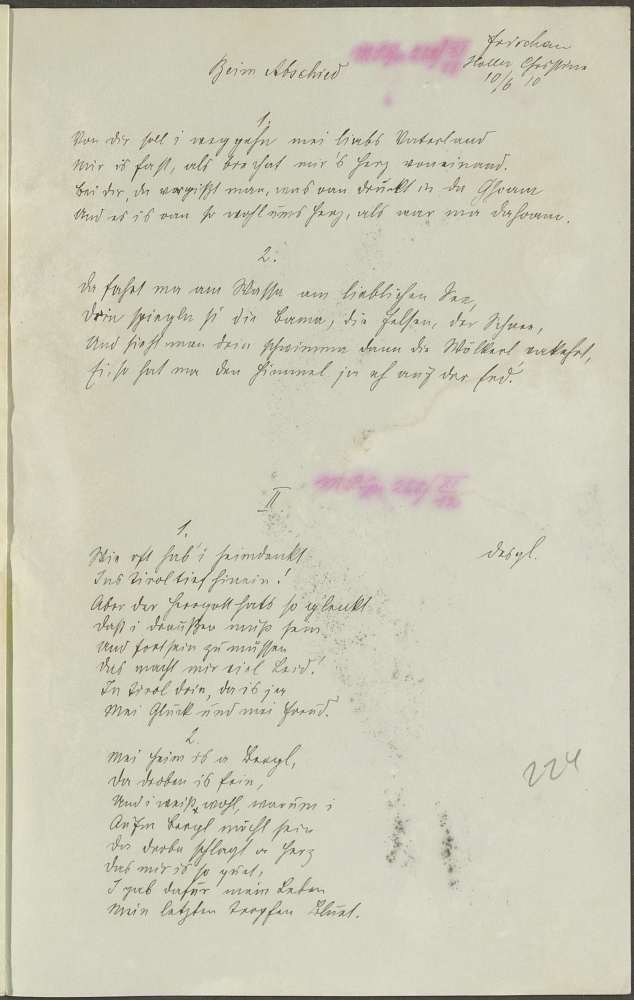 Beim Abschied
Frischau
Holler Christine
10/6 10
1.
Von dir soll i weggehn mei liabs Vaterland
Mir is fast, als brechat mir's Herz voneinand.
Bei dir, da vergißt man, was oan druckt in da Ghoam
Und es is oan so wohl ums Herz, als war ma dahoam.
2.
Da fahrt ma am Wassa am lieblichen See,
Drin spiegln si die Bama, die Felsen, der Schnee,
Und sieht man drin schwimma dann die Wölkerl vakehrt,
Ei, so hat ma den Himmel ja eh auf der Erd.
II
1.
desgl.
Wie oft hab' i heimdenkt
Ins Tirol tief hinein!
Aber der Herrgott hats so glenkt
Daß i draußen muß sein
Und fortsein zu müssen
Das macht mir viel Leid!
In Tirol drin, da is ja
Mei Glück und mei Freud.
2.
Mei Heim is a Bergl,
Da droben is fein,
Und i weiß wohl, warum i
Aufm Bergl möcht sein
Da drobn schlagt a Herz
Das mir is so guet,
I gab dafür mein Leben
Mein letzten Tropfen Bluet.
224